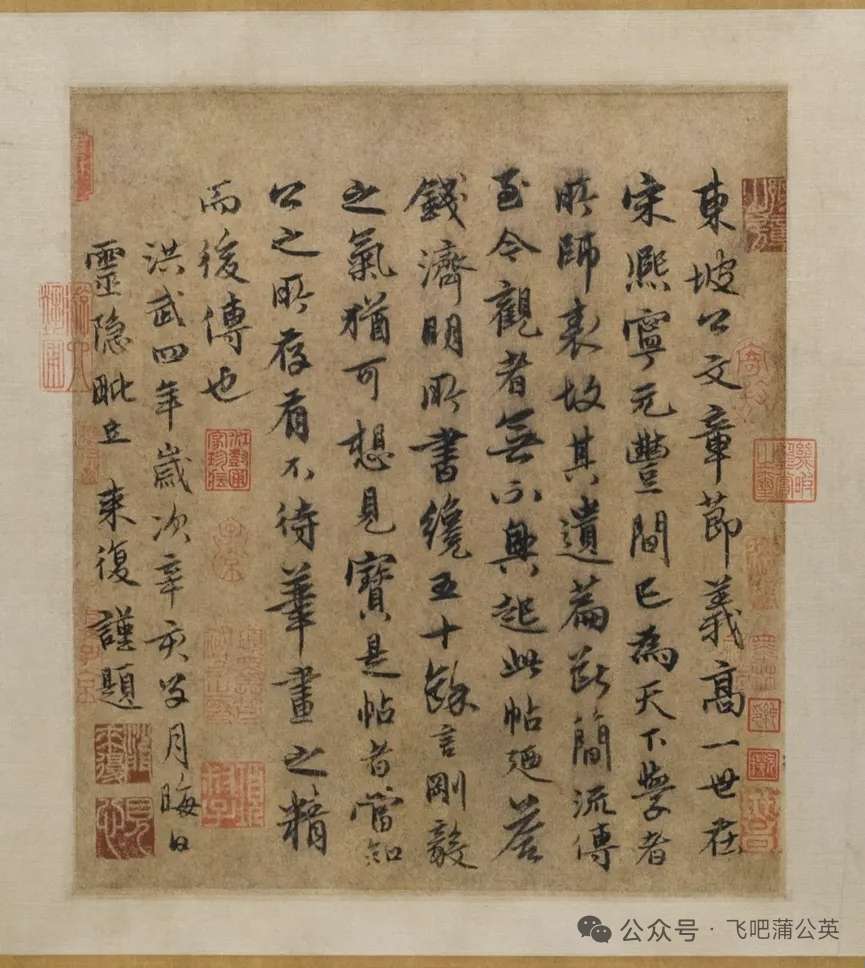 東坡公文章節義高一世在
宋熙寧元豐間已為天下學者
所師表故其遺篇斷簡流傳
至今觀者無不興起此帖迺答
錢濟明所書纔五十餘言剛毅
之氣猶可想見寶是帖者當知
公之所存有不待筆畫之精
而後傳也
洪武四年歲次辛亥四月晦日
靈隱毗丘 來復謹題
公众号·飞吧蒲公英